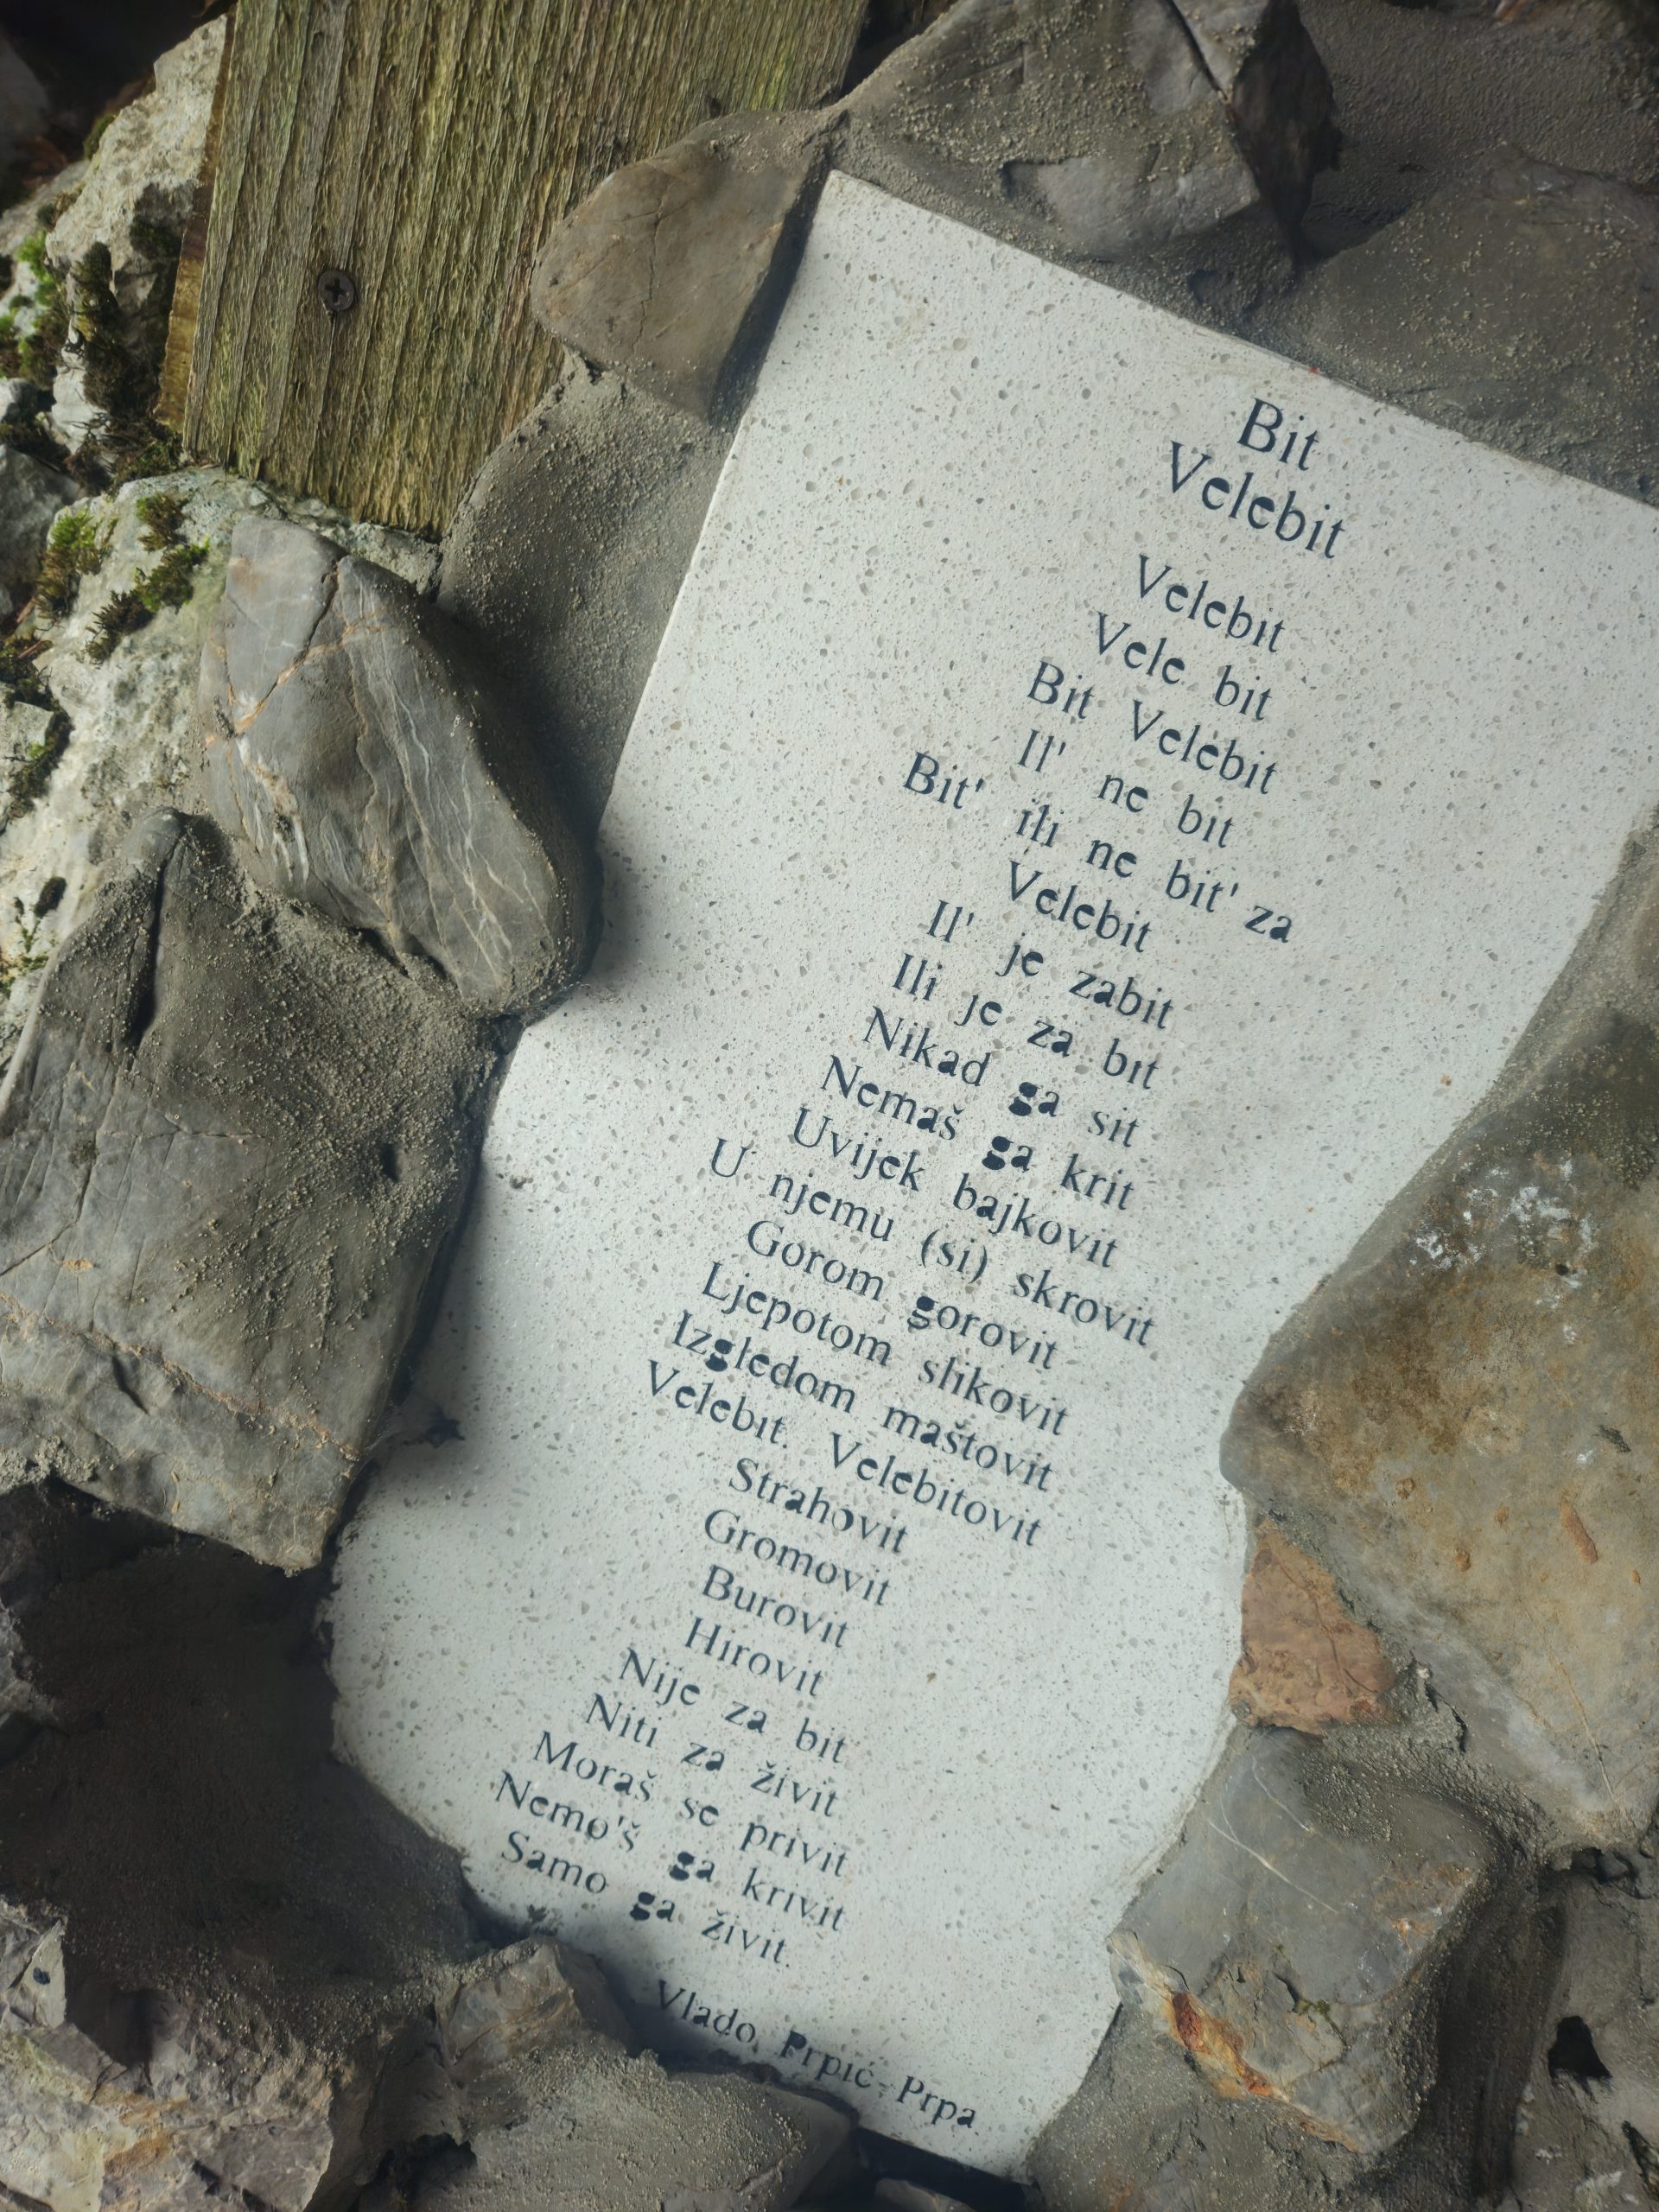 Bit
Velebit
Velebit
Vele bit
Bit Velebit
Il' ne bit
Bit' ili ne bit' za
Velebit
Il' je zabit
Ili je za bit
Nikad ga sit
Nemaš ga krit
Uvijek bajkovit
U njemu (si) skrovit
Gorom gorovit
Ljepotom slikovit
Izgledom maštovit
Velebit. Velebitovit
Strahovit
Gromovit
Burovit
Hirovit
Nije za bit
Niti za živit
Moraš se privit
Nemo'š ga krivit
Samo ga živit.
Vlado Prpić-Prpa